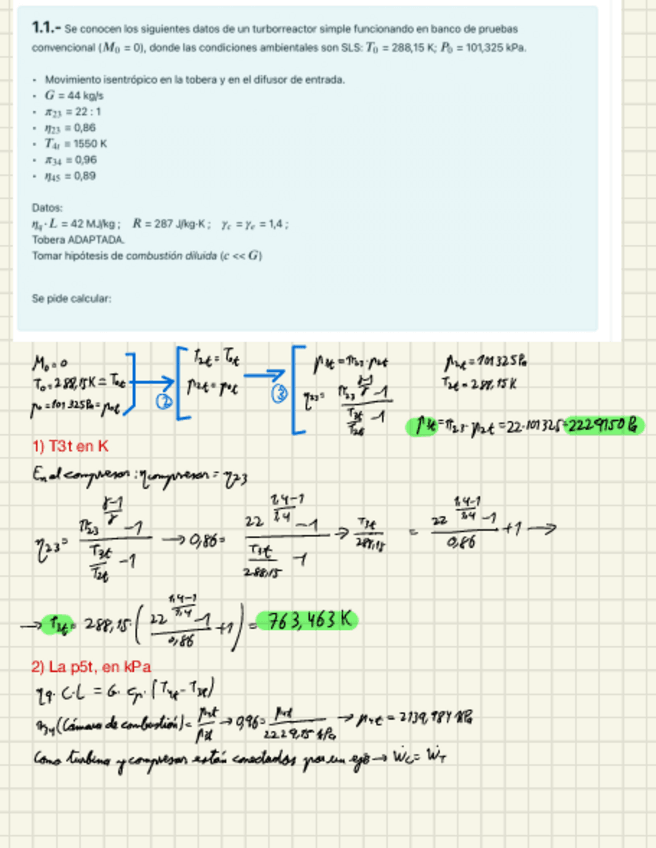 1.1.- Se conocen los siguientes datos de un turborreactor simple funcionando en banco de pruebas
convencional (M₀ = 0), donde las condiciones ambientales son SLS: T₀ = 288,15 K; P₀ = 101,325 kPa.
• Movimiento isentrópico en la tobera y en el difusor de entrada.
• G = 44 kg/s
• π₂₃ = 22 : 1
• η₂₃ = 0,86
• T₄ₜ = 1550 K
• π₃₄ = 0,96
• η₄₅ = 0,89
Datos:
η_q · L = 42 MJ/kg ; R = 287 J/kg·K ; γ_c = γ_e = 1,4 ;
Tobera ADAPTADA.
Tomar hipótesis de combustión diluida (c << G)
Se pide calcular:
M₀ = 0
T₀ = 288,15K = T₀ₜ
p₀ = 101325Pa = p₀ₜ
②
T₂ₜ = T₀ₜ
p₂ₜ = p₀ₜ
③
p₃ₜ = π₂₃ · p₂ₜ
η₂₃ = (π₂₃^((γ-1)/γ) - 1) / (T₃ₜ/T₂ₜ - 1)
p₂ₜ = 101325 Pa
T₂ₜ = 288,15 K
p₃ₜ = π₂₃ · p₂ₜ = 22 · 101325 = 2229150 Pa
1) T3t en K
En el compresor : ηcompresor = η₂₃
η₂₃ = (π₂₃^((γ-1)/γ) - 1) / (T₃ₜ/T₂ₜ - 1) → 0,86 = (22^((1,4-1)/1,4) - 1) / (T₃ₜ/288,15 - 1) → T₃ₜ/288,15 = (22^((1,4-1)/1,4) - 1)/0,86 + 1 →
→ T₃ₜ = 288,15 · ((22^((1,4-1)/1,4) - 1)/0,86 + 1) = 763,463 K
2) La p5t, en kPa
η_q · C · L = G · c_p · (T₄ₜ - T₃ₜ)
π₃₄ (Cámara de combustión) = p₄ₜ/p₃ₜ → 0,96 = p₄ₜ/2229,15 kPa → p₄ₜ = 2139,984 kPa
Como turbina y compresor están conectados por un eje → Ẇc = ẆT